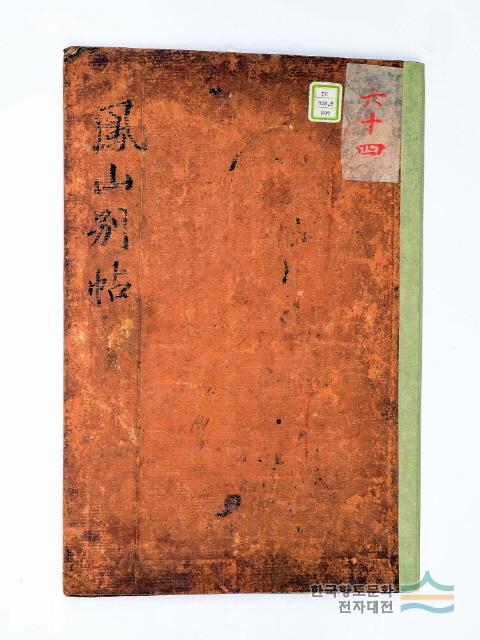 鳳山別帖
六十四
IV
928.8
한국향토문화
전자대전